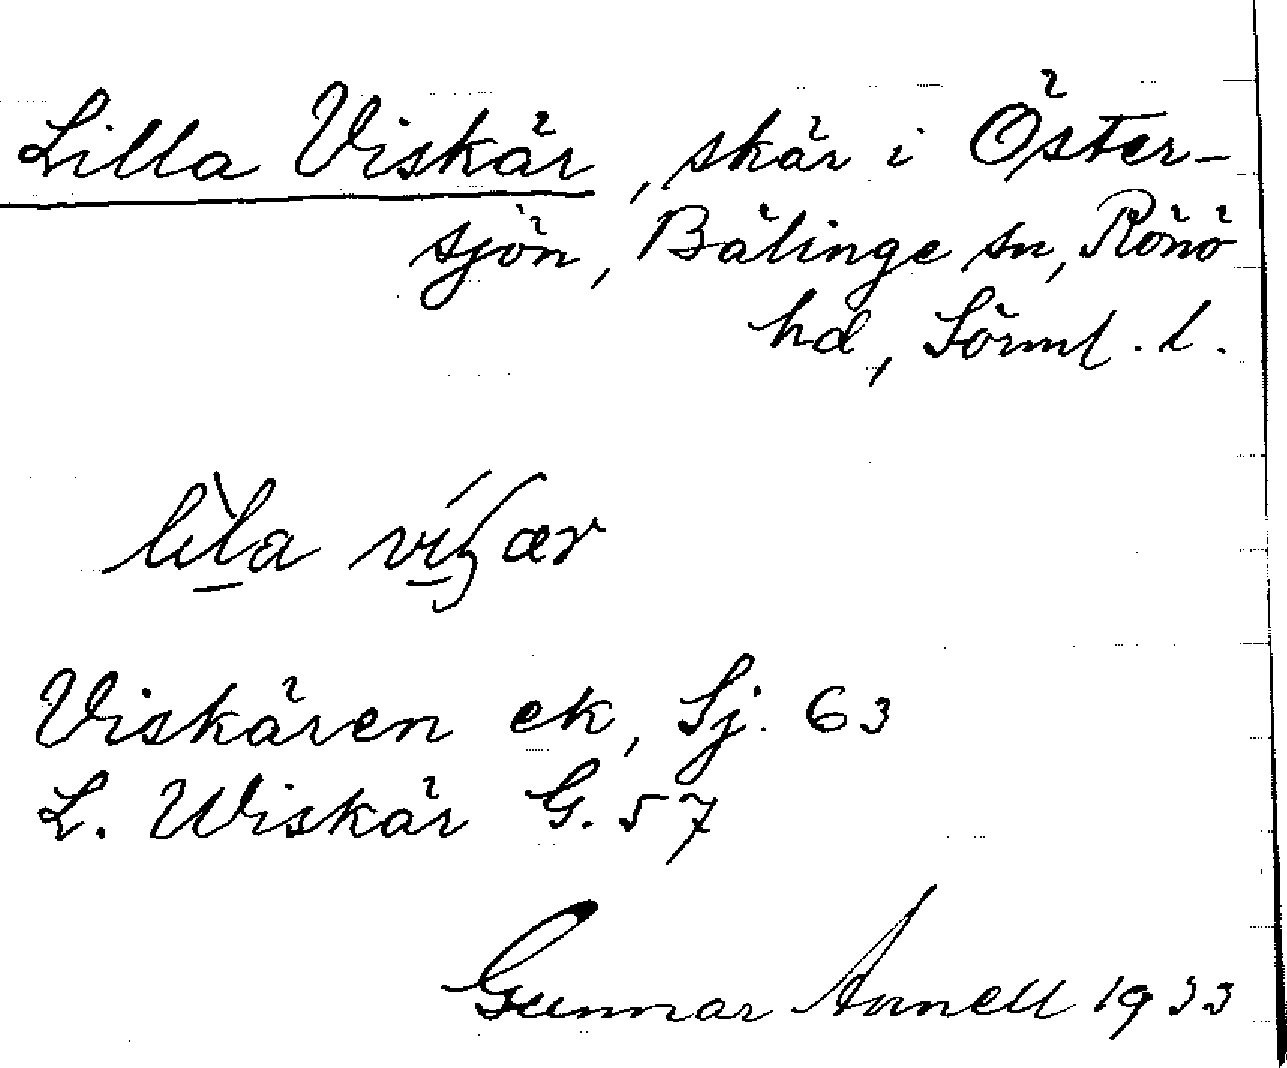 Lilla Viskär, skär i Öster-
sjön, Bälinge sn, Rönö
hd, Sörml. l.
lìla víʃær
Viskären ek, Sj. 63
L. Wiskär G. 57
Gunnar Arnell 1933